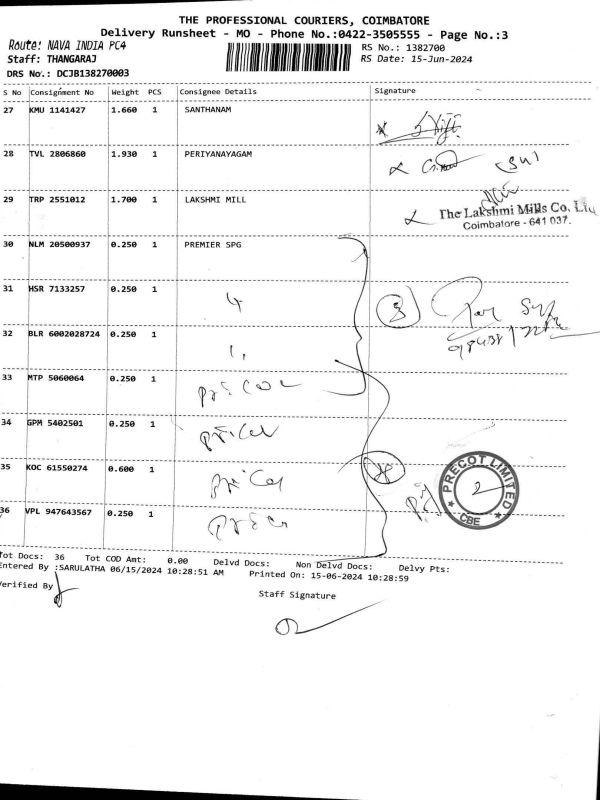 THE PROFESSIONAL COURIERS, COIMBATORE
Delivery Runsheet - MO - Phone No.:0422-3505555 - Page No.:3
Route: NAVA INDIA PC4
RS No.: 1382700
Staff: THANGARAJ
RS Date: 15-Jun-2024
DRS No.: DCJB138270003
S No Consignment No Weight PCS Consignee Details Signature
27 KMU 1141427 1.660 1 SANTHANAM
28 TVL 2806860 1.930 1 PERIYANAYAGAM
29 TRP 2551012 1.700 1 LAKSHMI MILL
The Lakshmi Mills Co. Ltd
Coimbatore - 641 037.
30 NLM 20500937 0.250 1 PREMIER SPG
31 HSR 7133257 0.250 1
32 BLR 6002028724 0.250 1
33 MTP 5060064 0.250 1
34 GPM 5402501 0.250 1
35 KOC 61550274 0.600 1
PRECOT LIMITED
CBE
36 VPL 947643567 0.250 1
Tot Docs: 36 Tot COD Amt: 0.00 Delvd Docs: Non Delvd Docs: Delvy Pts:
Entered By :SARULATHA 06/15/2024 10:28:51 AM Printed On: 15-06-2024 10:28:59
Verified By
Staff Signature